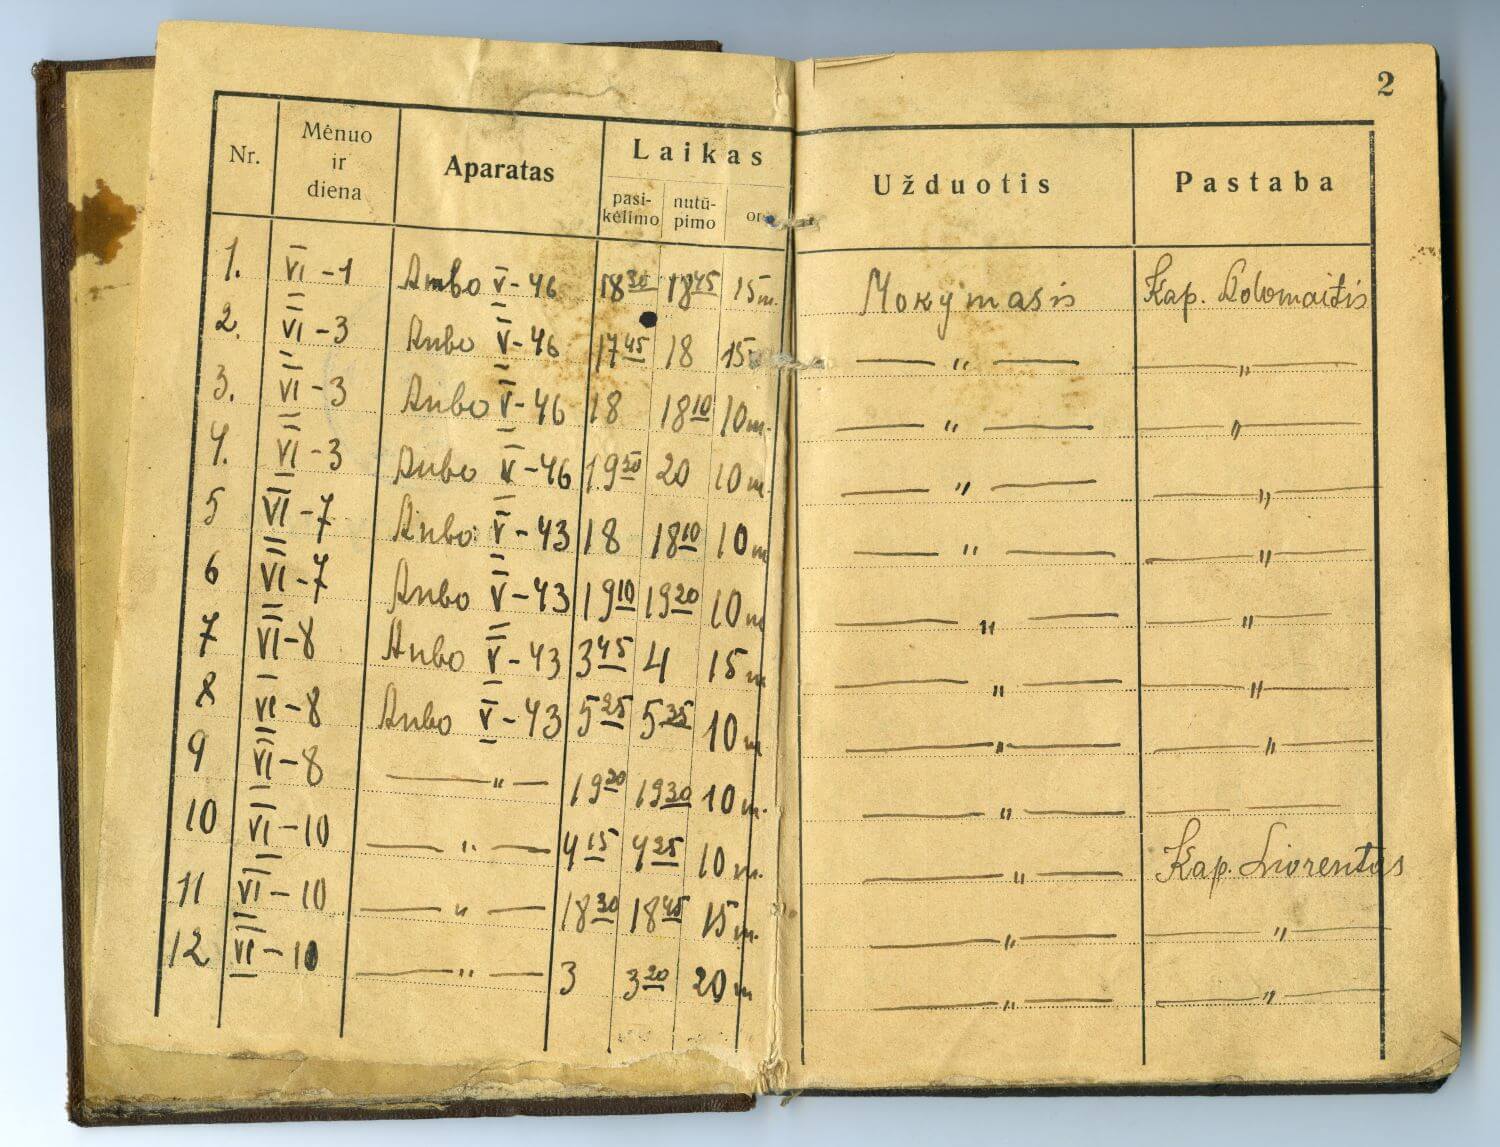 2
Nr. Mėnuo ir diena Aparatas Laikas Užduotis Pastaba
pasi-kėlimo nutū-pimo oro
1. VI-1 Anbo V-46 18 30 18 45 15m. Mokymasis Kap. Dolomaitis
2. VI-3 Anbo V-46 17 45 18 15 — " — — " —
3. VI-3 Anbo V-46 18 18 10 10m. — " — — " —
4. VI-3 Anbo V-46 19 50 20 10m. — " — — " —
5 VI-7 Anbo V-43 18 18 10 10m — " — — " —
6 VI-7 Anbo V-43 19 10 19 20 10m — " — — " —
7 VI-8 Anbo V-43 3 45 4 15m — " — — " —
8 VI-8 Anbo V-43 5 25 5 35 10m — " — — " —
9 VI-8 — " — 19 20 19 30 10m. — " — — —
10 VI-10 — " — 4 15 4 25 10m. — " — Kap. Liorentas
11 VI-10 — " — 18 30 18 45 15m. — " — — " —
12 VI-10 — " — 3 3 20 20m — " — — " —